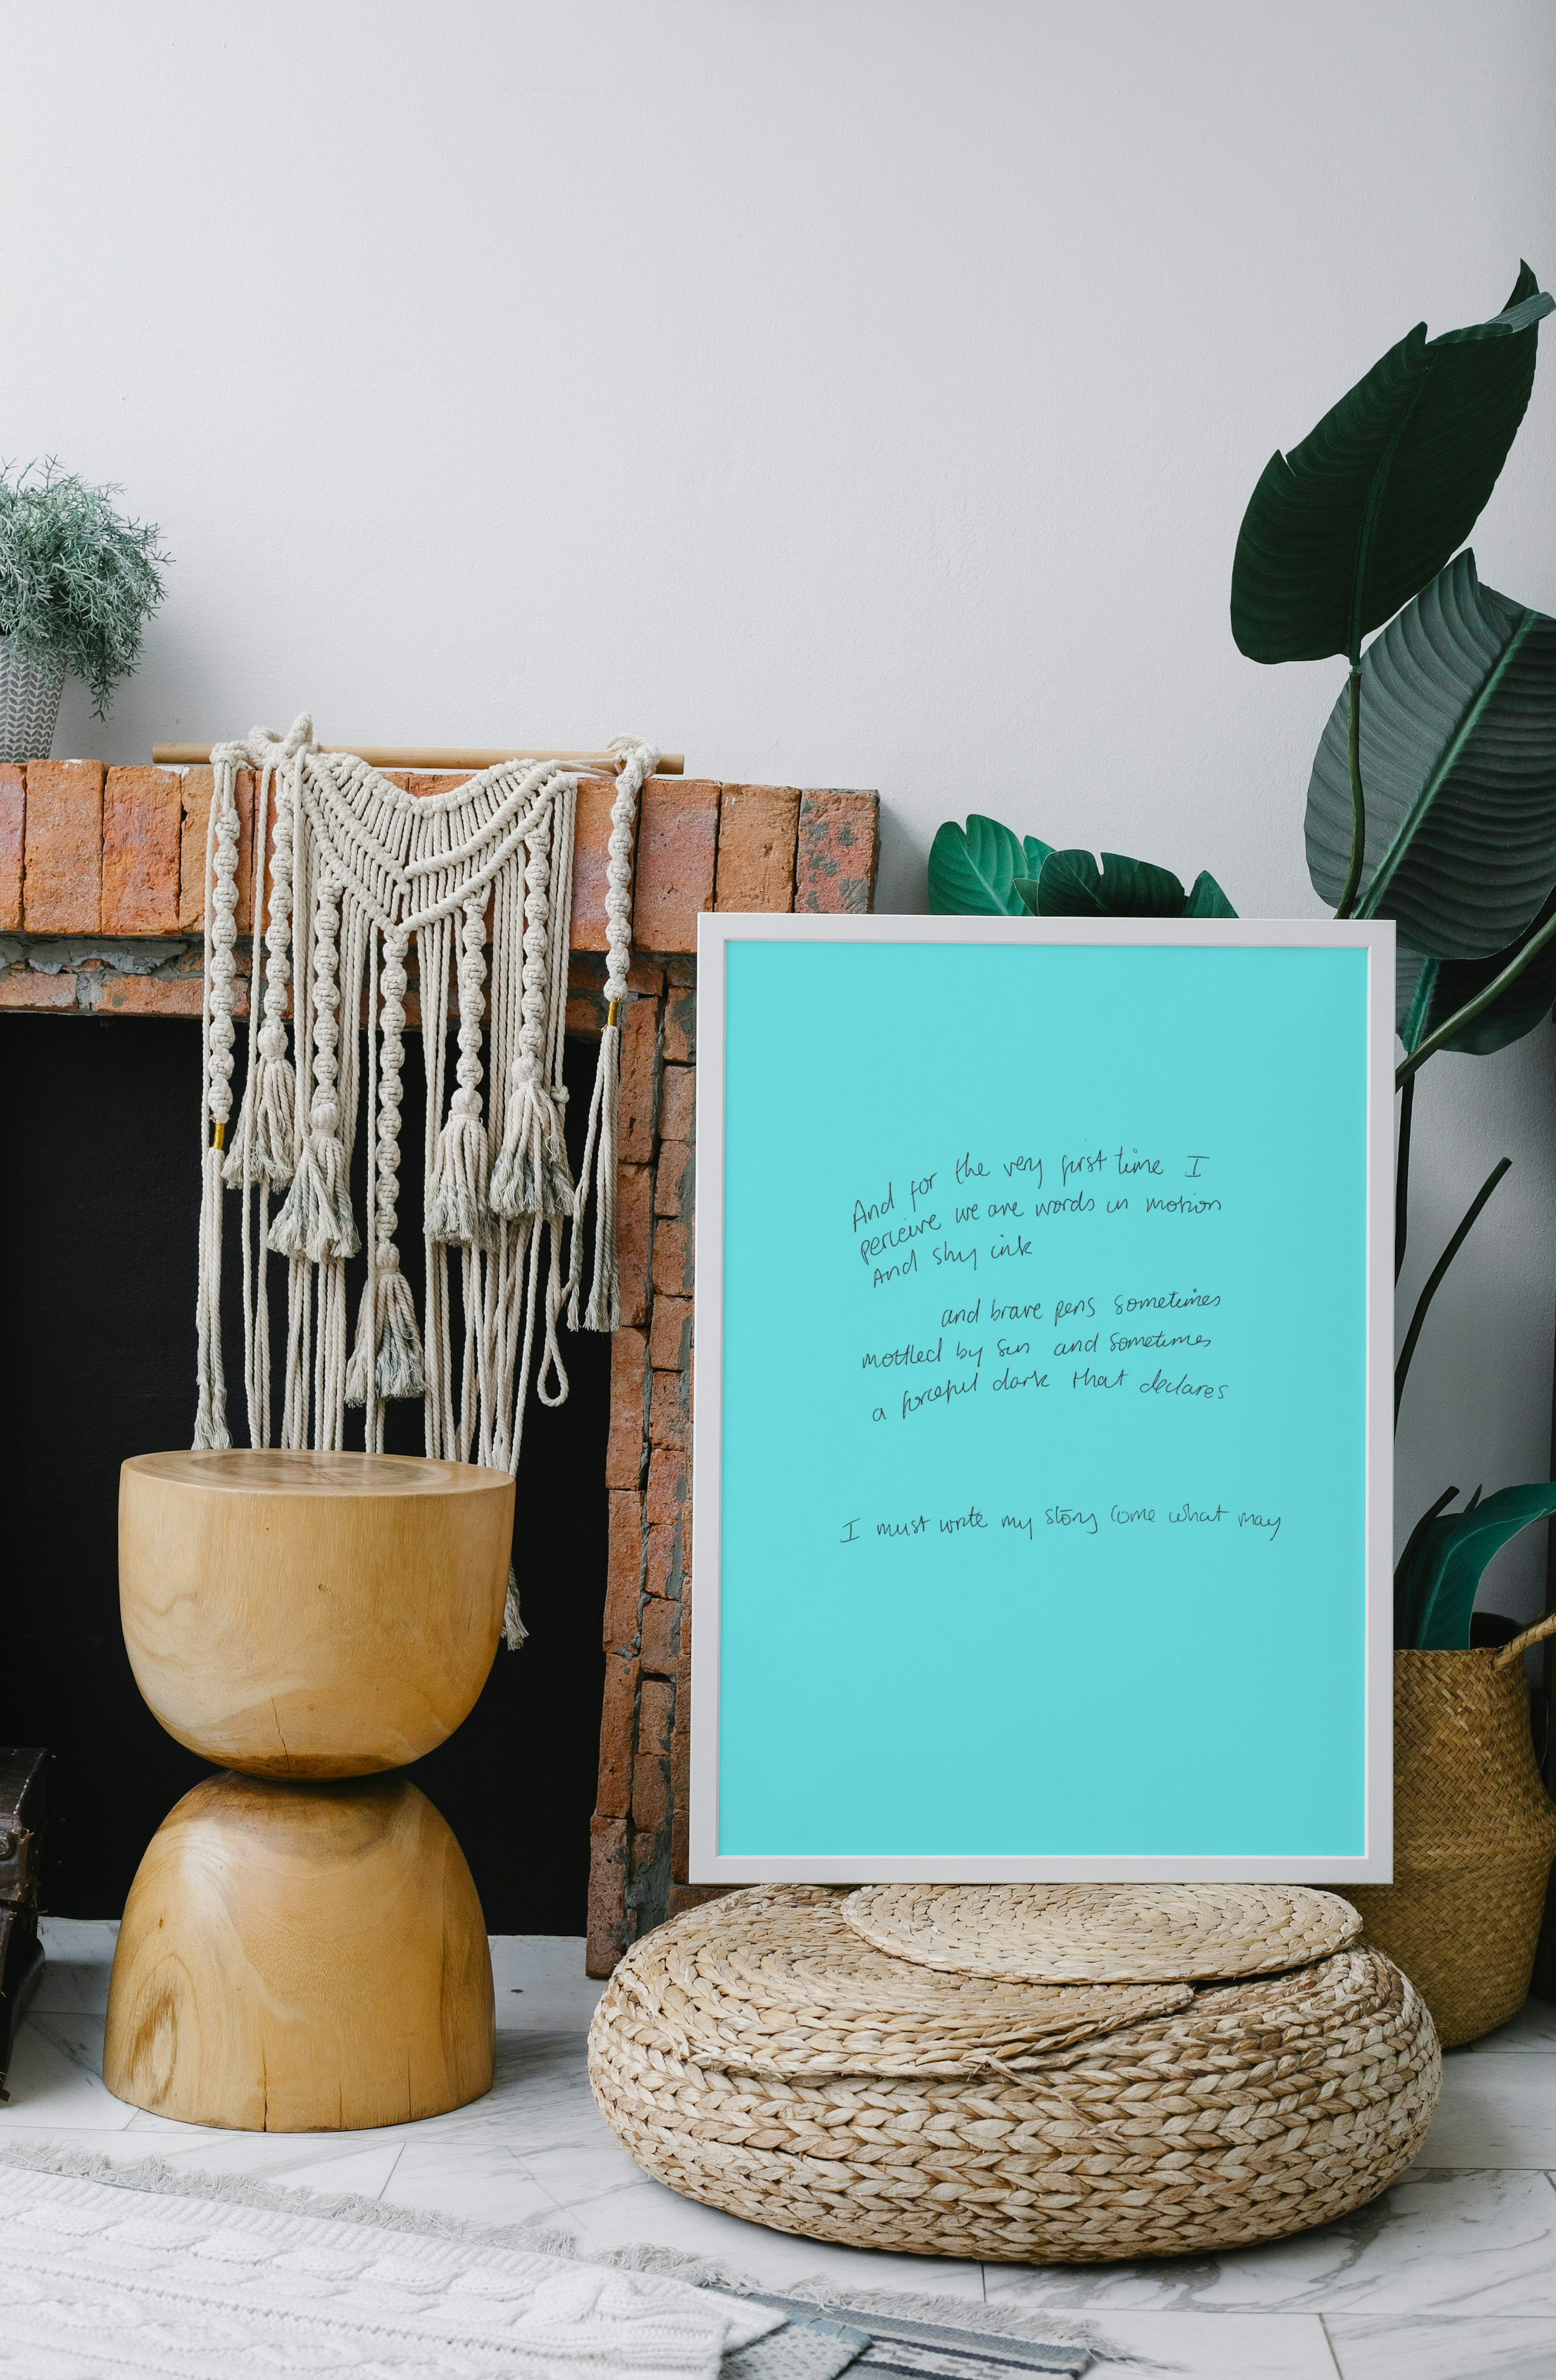 And for the very first time I
perceive we are words in motion
And shy ink
and brave pens sometimes
mottled by sun and sometimes
a forceful dark that declares
I must write my story come what may